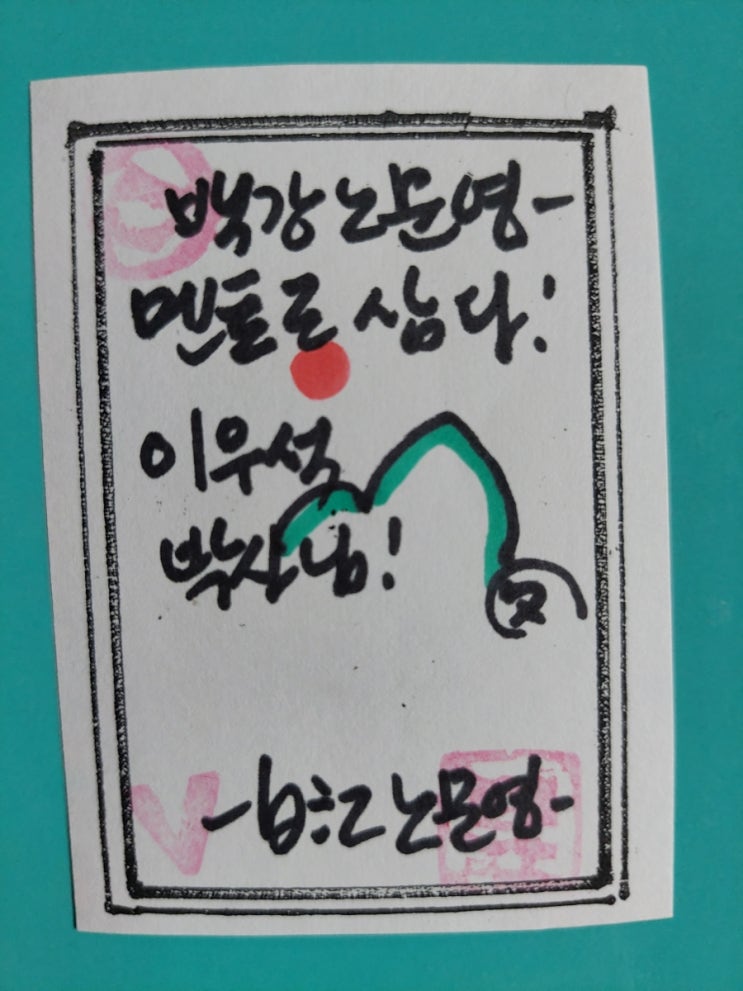 백강 노문영-
멘토로 삼다!
이우석
박사님!
노문영-